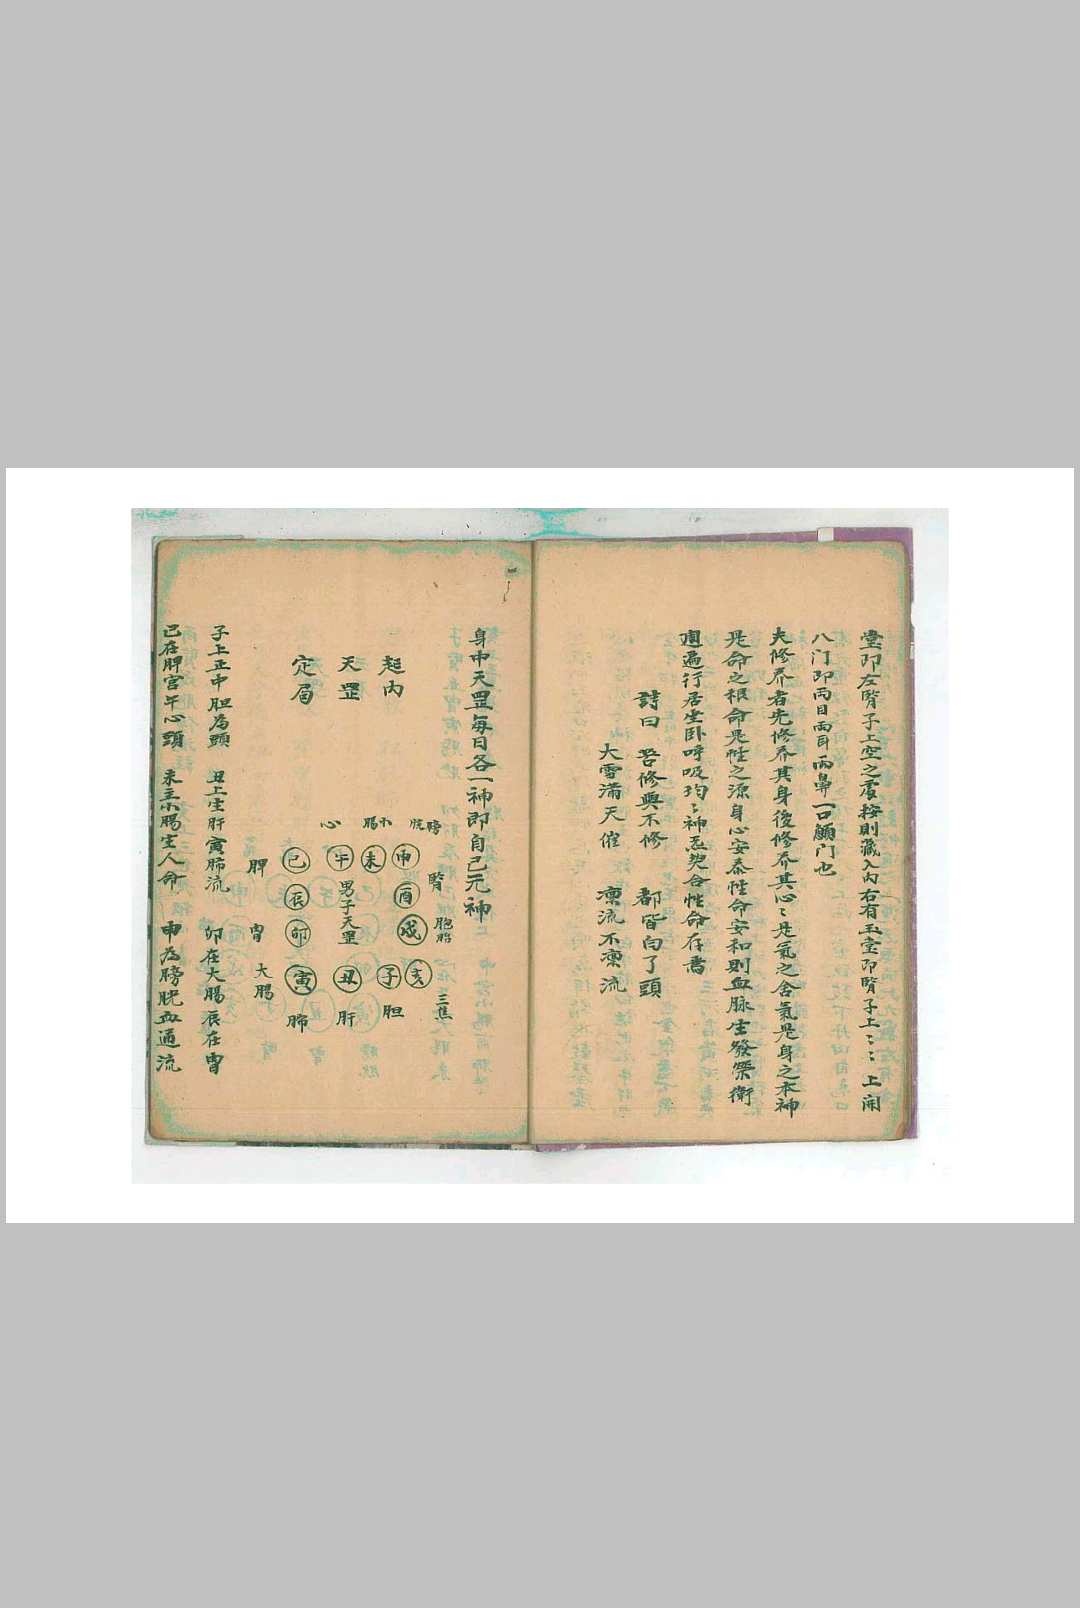 堂即左腎子上空之處按則藏入內右有玉堂即腎子上〻〻上開
八门即両目両耳両鼻一口顖门也
夫修养者先修养其身後修养其心〻是氣之舍氣是身之本神
是命之根命是性之源身心安泰性命安和則血脉生發榮衛
週遍行居坐卧呼吸均〻神炁契合性命存焉
詩曰 吾修與不修 都皆白了頭
大雪滿天催 凛流不凛流
身中天罡每日各一神即自己元神
起内
天罡
定局
膀胱 小腸 心
申 未 午 巳
腎 酉 辰 脾
胞胎 戌 男子天罡 卯 胃
亥 子 丑 寅 大腸
三焦 胆 肝 肺
子上正中胆為頭 丑上生肝寅肺流 卯在大腸辰在胃
巳在脾宫午心頭 未主小腸生人命 申為膀胱血通流